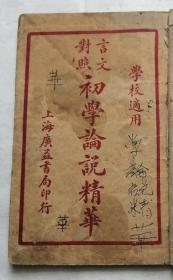 學校適用
言文對照
初學論說精華
上海廣益書局印行
學論說精華
華
華